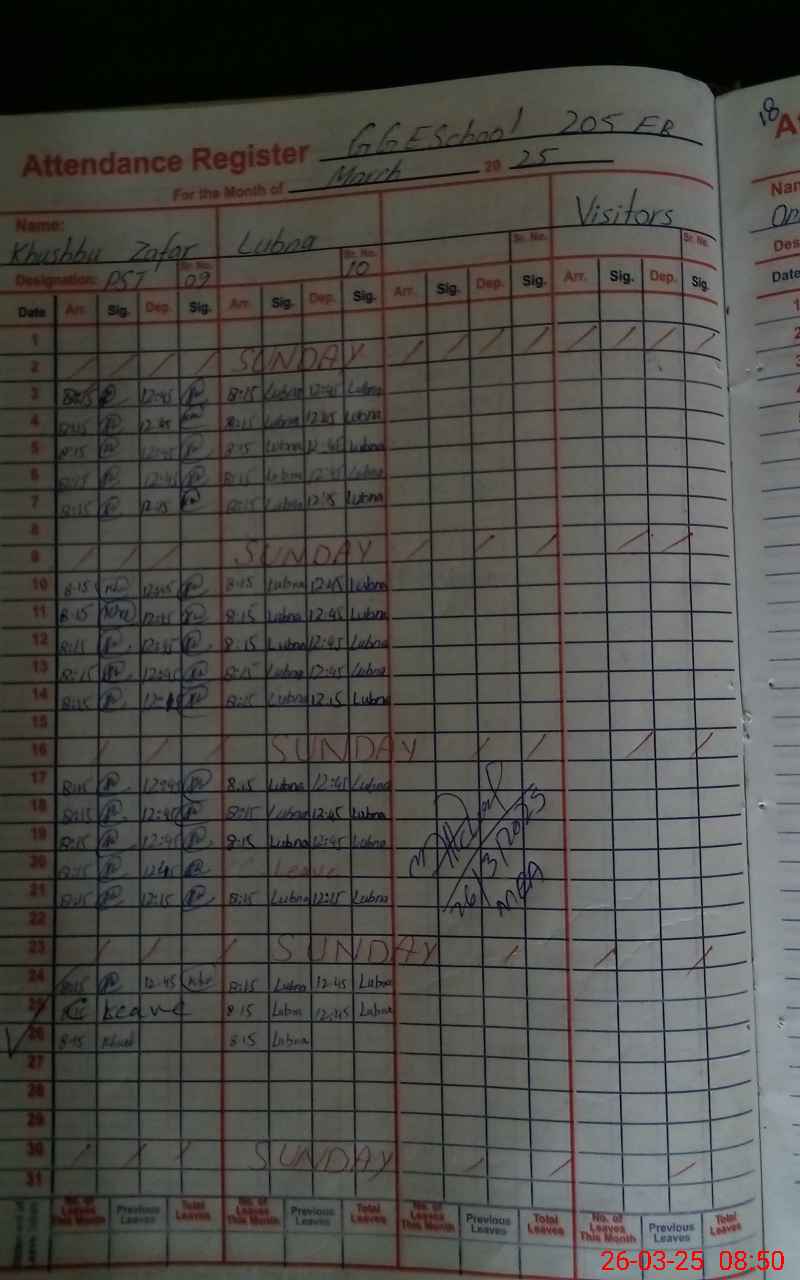 Attendance Register GGESchool 205 EB
For the Month of March 20 25
Name: Visitors
Khushbu Zafar Lubna Sr. No. Sr. No.
Designation: PST Sr. No. 09 Sr. No. 10
Date Arr. Sig. Dep. Sig. Arr. Sig. Dep. Sig. Arr. Sig. Dep. Sig. Arr. Sig. Dep. Sig.
1
2 SUNDAY
3 8:15 12:45 8:15 Lubna 12:45 Lubna
4 8:15 12:45 8:15 Lubna 12:45 Lubna
5 8:15 12:45 8:15 Lubna 12:45 Lubna
6 8:15 12:45 8:15 Lubna 12:45 Lubna
7 8:15 12:15 8:15 Lubna 12:15 Lubna
8
9 SUNDAY
10 8:15 12:45 8:15 Lubna 12:45 Lubna
11 8:15 12:45 8:15 Lubna 12:45 Lubna
12 8:15 12:45 8:15 Lubna 12:45 Lubna
13 8:15 12:45 8:15 Lubna 12:45 Lubna
14 8:15 8:15 Lubna 12:15 Lubna
15
16 SUNDAY
17 8:15 12:45 8:15 Lubna 12:45 Lubna
18 8:15 12:45 8:15 Lubna 12:45 Lubna
19 8:15 12:45 8:15 Lubna 12:45 Lubna
20 8:15 12:45 Leave
21 8:15 12:15 8:15 Lubna 12:15 Lubna
26/3/2025
MEA
22
23 SUNDAY
24 8:15 12:45 8:15 Lubna 12:45 Lubna
25 Leave 8:15 Lubna 12:45 Lubna
26 8:15 8:15 Lubna
27
28
29
30 SUNDAY
31
No. of Leaves This Month Previous Leaves Total Leaves No. of Leaves This Month Previous Leaves Total Leaves No. of Leaves This Month Previous Leaves Total Leaves No. of Leaves This Month Previous Leaves Total Leaves
18
Date
26-03-25 08:50